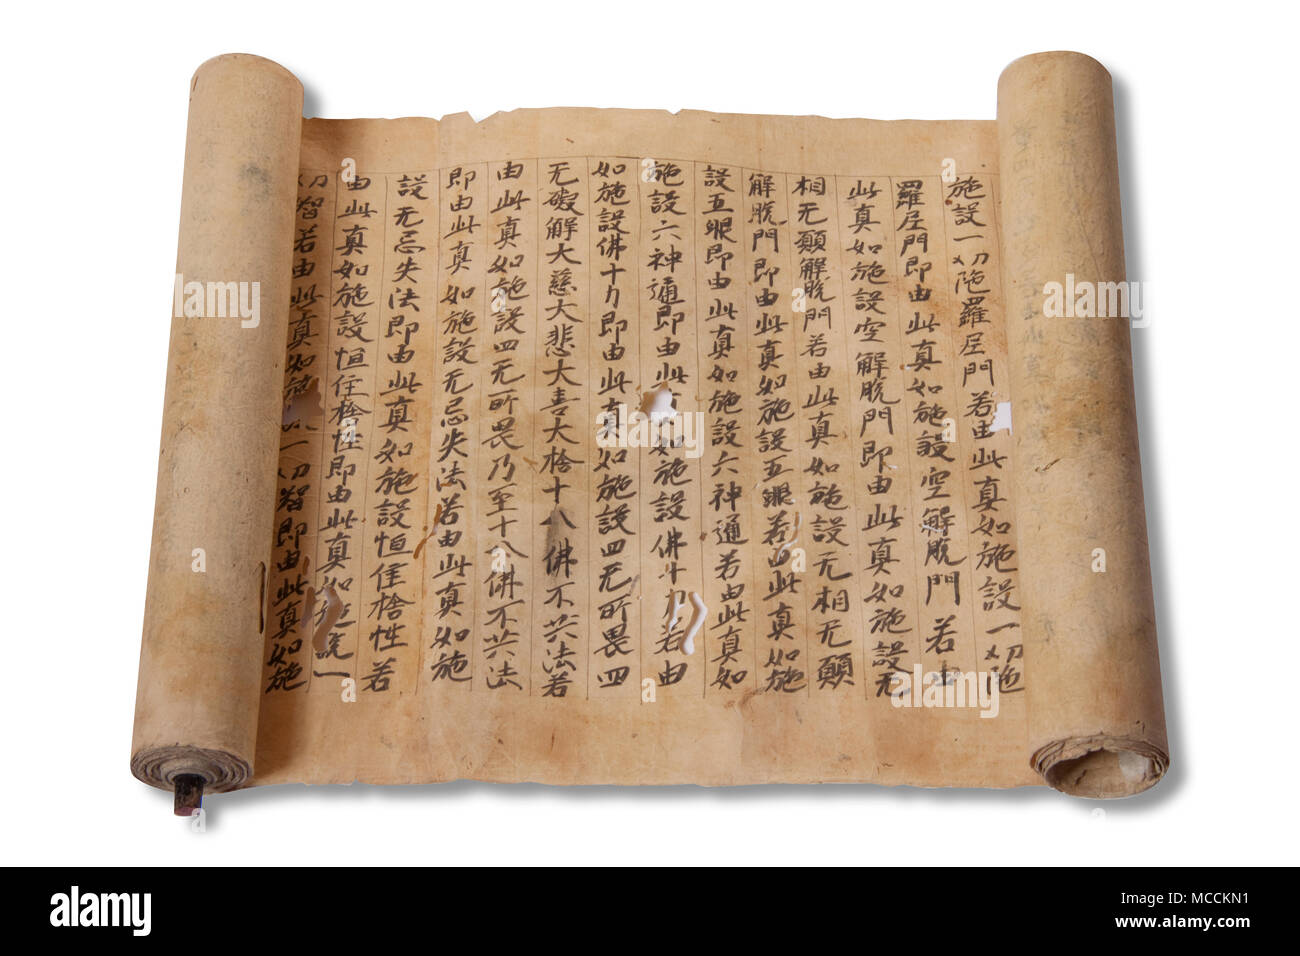 施設一切陁羅尼門若由此真如施設一切陁
羅尼門即由此真如施設空解脫門若由
此真如施設空解脫門即由此真如施設无
相无願解脫門若由此真如施設无相无願
解脫門即由此真如施設五眼若由此真如施
設五眼即由此真如施設六神通若由此真如
施設六神通即由此 如施設佛十力若由
如施設佛十力即由此真如施設四无所畏四
无礙解大慈大悲大喜大捨十八佛不共法若
由此真如施設四无所畏乃至十八佛不共法
即由此真如施設无忘失法若由此真如施
設无忘失法即由此真如施設恒住捨性若
由此真如施設恒住捨性即由此真如施設一
切智若由此真如施 一切智即由此真如施
alamy
a
a
alamy
Image ID: MCCKN1
www.alamy.com